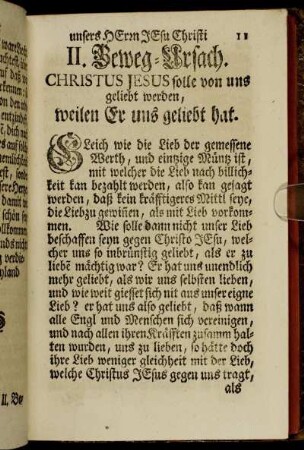 unsers HErrn JEsu Christi 11
II. Beweg-Ursach.
CHRISTUS JESUS solle von uns
geliebt werden,
weilen Er uns geliebt hat.
GLeich wie die Lieb der gemessene
Werth, und eintzige Müntz ist,
mit welcher die Lieb nach billich-
keit kan bezahlt werden, also kan gesagt
werden, daß kein kräfftigeres Mittl seye,
die Lieb zu gewiñen, als mit Lieb vorkom-
men. Wie solle dann nicht unser Lieb
beschaffen seyn gegen Christo JEsu, wel-
cher uns so inbrünstig geliebt, als er zu
liebẽ mächtig war? Er hat uns unendlich
mehr geliebt, als wir uns selbsten lieben,
und wie weit giesset sich nit aus unser eigne
Lieb? er hat uns also geliebt, daß wann
alle Engl und Menschen sich vereinigen,
und nach allen ihren Kräfften zusamm hal-
ten wurden, uns zu lieben, so hätte doch
ihre Lieb weniger gleichheit mit der Lieb,
welche Christus JEsus gegen uns tragt,
als